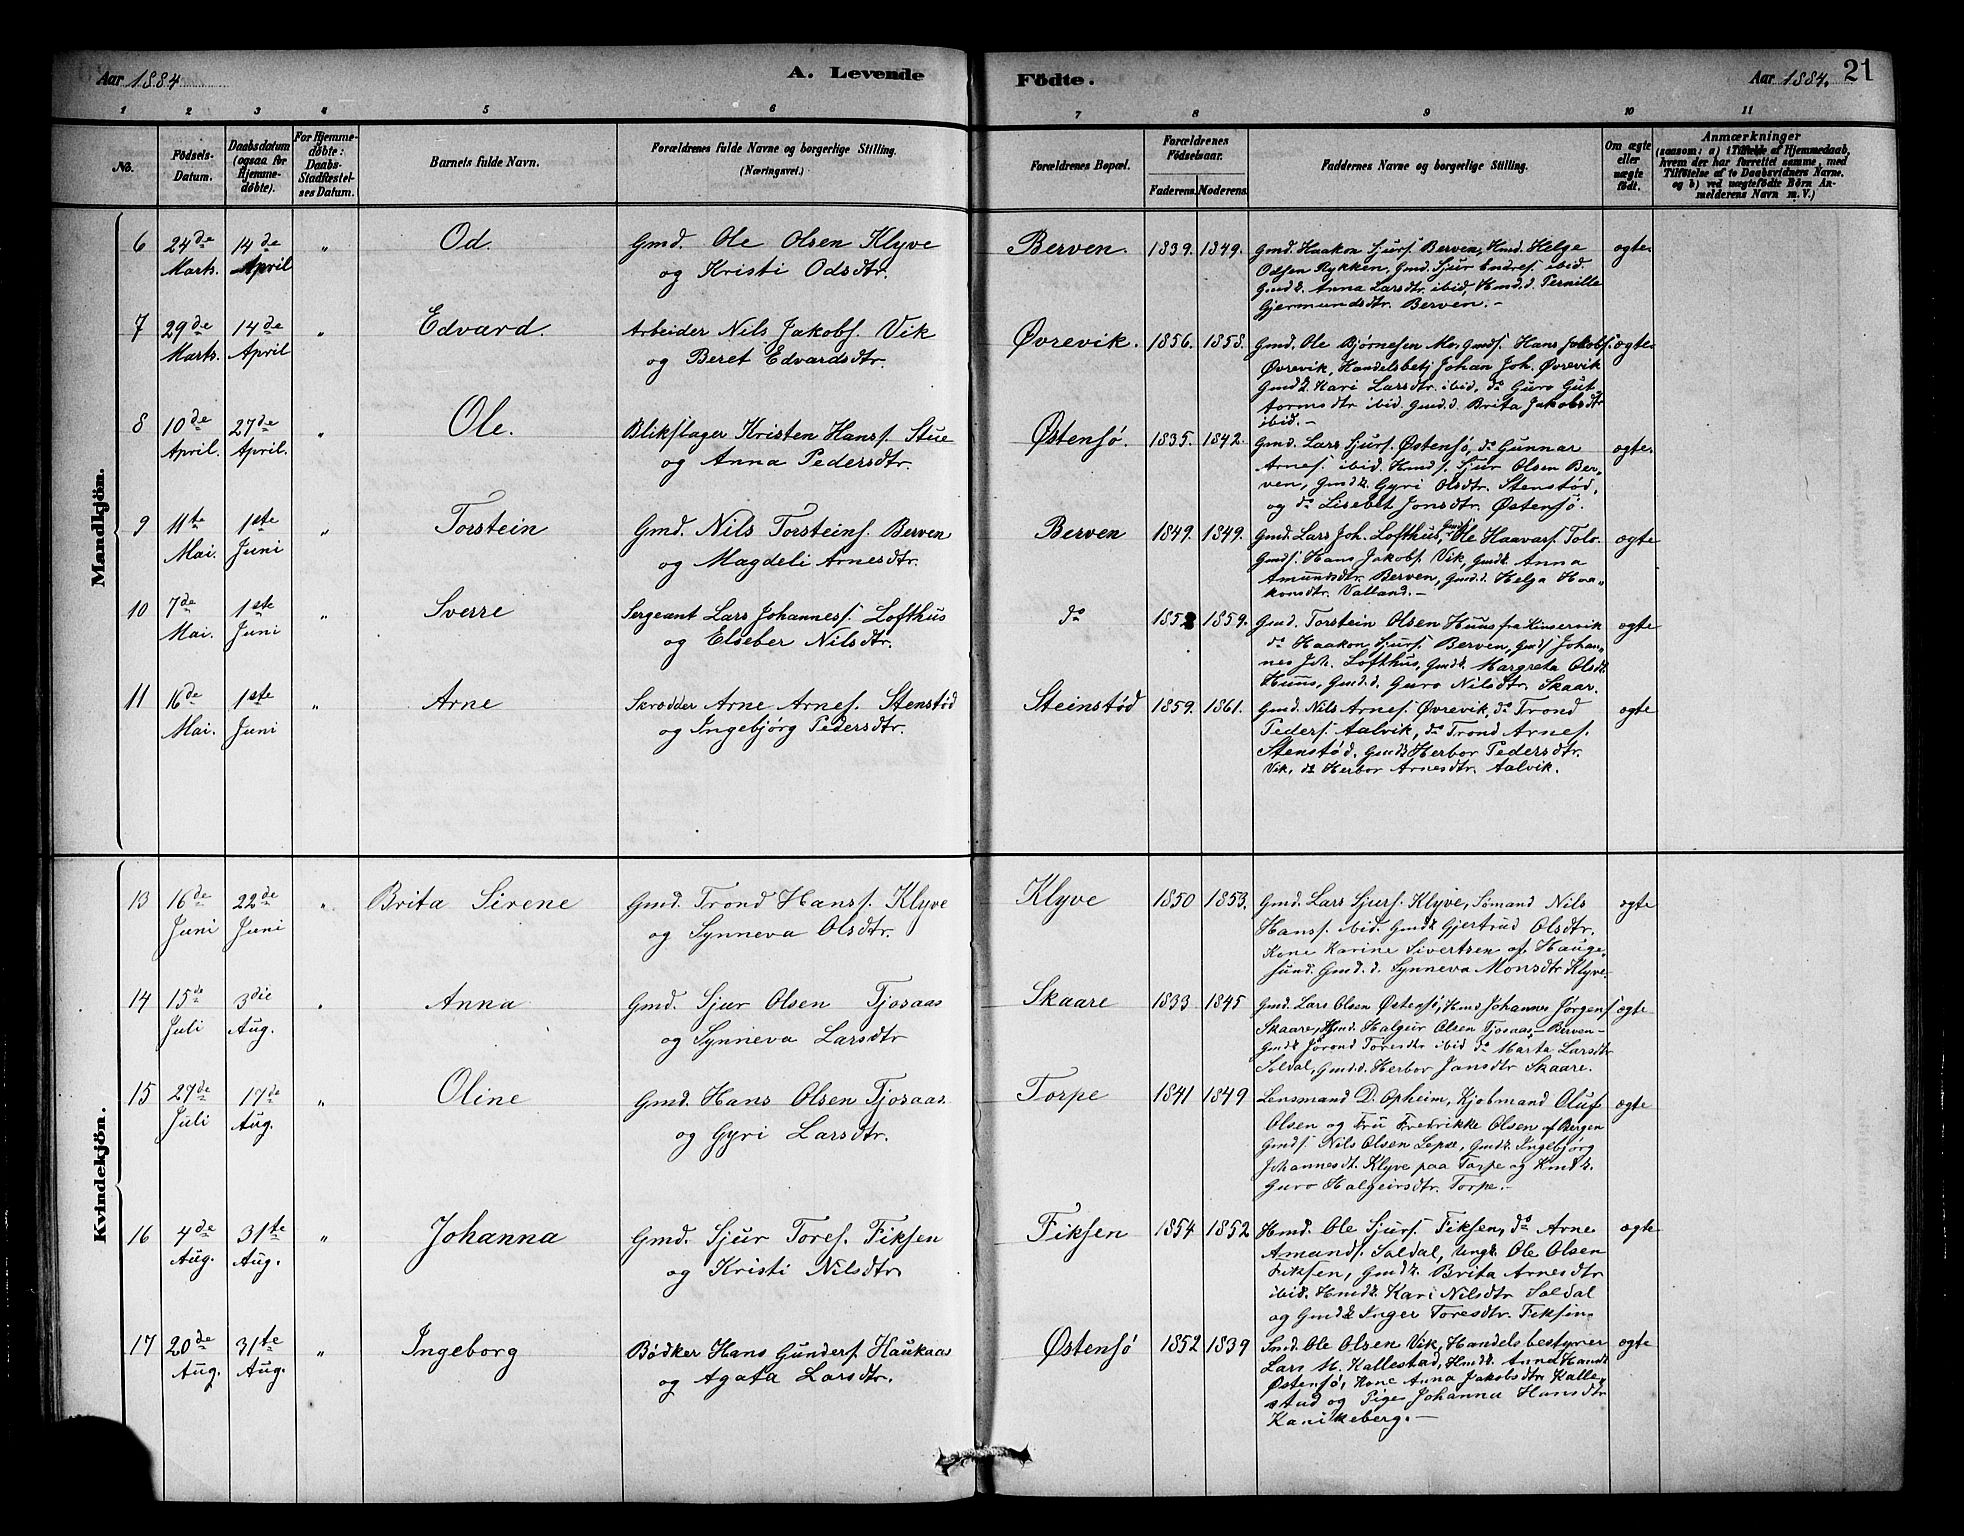 Aar 1884
A. Levende
Födte.
Aar 1884.
21
1 2 3 4 5 6 7 8 9 10 11
No.
Födsels-
Datum.
Daabsdatum
(ogsaa for
Hjemme-
döbte).
For Hjemme-
døbte:
Daabs-
Stadfæstel-
ses Datum.
Barnets fulde Navn.
Forældrenes fulde Navne og borgerlige Stilling.
(Næringsvei.)
Forældrenes Bopæl.
Forældrenes
Födselsaar.
Faderens. Moderens.
Faddernes Navne og borgerlige Stilling.
Om ægte
eller
uægte
födt.
Anmærkninger
(saasom: a) i Tilfælde af Hjemmedaab,
hvem der har forrettet samme, med
Tilföielse af to Daabsvidners Navne,
og b) ved uægtefödte Börn An-
melderens Navn m. V.)
Mandkjön.
6 24de 14de " Od. Gmd. Ole Olsen Klyve Berven. 1839. 1849. Gmd. Haakon Sjurs. Berven, Kmd. Helge ægte
Marts. April og Kristi Odsdtr. Odsen Rykken, Gmd. Sjur Endres. ibid.
Gmdk. Anna Larsdtr. ibid, Kmd.d. Pernille
Gjermundsdtr. Berven.-
7 29de 14de " Edvard Arbeider Nils Jakobs. Vik Øvrevik. 1856. 1858. Gmd. Ole Bjørnesen Mo, Gmds. Hans Jakobs. ægte
Marts. April og Beret Edvardsdtr. Øvrevik, Handelsbetj. Johan Joh. Øvrevik
Gmdk. Kari Larsdtr. ibid, do Guro Gut
tormsdtr ibid. Gmd.d. Brita Jakobsdtr
ibid.-
8 10de 27de " Ole. Blikslager Kristen Hans. Stue Østensø 1835. 1842. Gmd. Lars Sjurs. Østensø, do Gunnar ægte
April. April. og Anna Pedersdtr. Arnes. ibid. Kmds. Sjur Olsen Ber-
ven, Gmdk. Gyri Olsdtr. Stenstød,
og do Lisebet Jonsdtr. Østensø.
9 11te 1ste " Torstein Gmd. Nils Torsteins. Berven Berven 1849. 1849. Gmd. Lars Joh. Lofthus, Gmds. Ole Haavars. Tolo. ægte
Mai. Juni og Magdeli Arnesdtr. Gmds. Hans Jakobs. Vik, Gmdk. Anna
Amundsdtr. Berven, Gmd.d. Helga Haa-
konsdtr. Valland.-
10 7de 1ste " Sverre Sergeant Lars Johanness. Lofthus do 1852 1859. Gmd. Torstein Olsen Huus fra Kinservik ægte
Mai. Juni og Elseber Nilsdtr. do Haakon Sjurs. Berven, Gmds. Johan-
nes Joh. Lofthus, Gmdk. Margreta Olsdtr
Huus, Gmd.d. Guro Nilsdtr. Skaar.
11 16de 1ste " Arne Skrædder Arne Arnes. Stenstød Steinstød 1859. 1861. Gmd. Nils Arnes. Øvrevik, do Trond ægte
Mai. Juni og Ingebjörg Pedersdtr. Peders. Aalvik, do Trond Arnes.
Stenstød, Gmdk. Herbor Pedersdtr.
Vik, do Herbor Arnesdtr. Aalvik.
Kvindekjön.
13 16de 22de " Brita Sirene Gmd. Trond Hans. Klyve Klyve 1850 1853. Gmd. Lars Sjurs. Klyve, Sømand Nils ægte
Juni Juni og Synneva Olsdtr. Hans. ibid. Gmdk. Gjertrud Olsdtr.
Kone Karine Sivertsen af Hauge-
sund. Gmd.d. Synneva Monsdtr Klyve.
14 15de 3die " Anna Gmd. Sjur Olsen Tjosaas Skaare 1833 1845 Gmd. Lars Olsen Østensø, Kmd Johannes Jørgens. ægte
Juli Aug. og Synneva Larsdtr Skaare, Gmd. Halgeir Olsen Tjosaas - Berven-
Gmdk Jörond Toresdtr ibid do Märta Larsdtr
Soldal, Gmd.d. Herbor Jansdtr Skaare.
15 27de 17de " Oline Gmd. Hans Olsen Tjosaas Torpe 1841 1849 Lensmand D. Opheim, Kjøbmand Oluf ægte
Juli Aug. og Gyri Larsdtr. Olsen og Fru Fredrikke Olsen af Bergen
Gmds. Nils Olsen Lepse, Gmdk. Ingebjörg
Johannesdt. Klyve paa Torpe og Kmdk.
Guro Halgeirsdtr. Torpe.-
16 4de 31te " Johanna Gmd. Sjur Tores. Fiksen Fiksen 1854 1852 Hmd. Ole Sjurs. Fiksen, do Arne ægte
Aug. Aug. og Kristi Nilsdtr Amands. Soldal, Ungk. Ole Olsen
Fiksen, Gmdk. Brita Arnesdtr
ibid. Hmdk. Kari Nilsdtr Soldal
og Gmdk Inger Toresdtr. Fiksen.
17 20de 31te " Ingeborg Bødker Hans Gunders. Haukaas Østensø 1852 1839 Smd. Ole Olsen Vik, Handelsbestyrer ægte
Aug. Aug. og Agata Larsdtr. Lars M. Kallestad, Kmdk. Anna Hansdt.
Østensø, Kone Anna Jakobsdtr Kalle-
stad og Pige Johanna Hansdtr
Kanikeberg.-